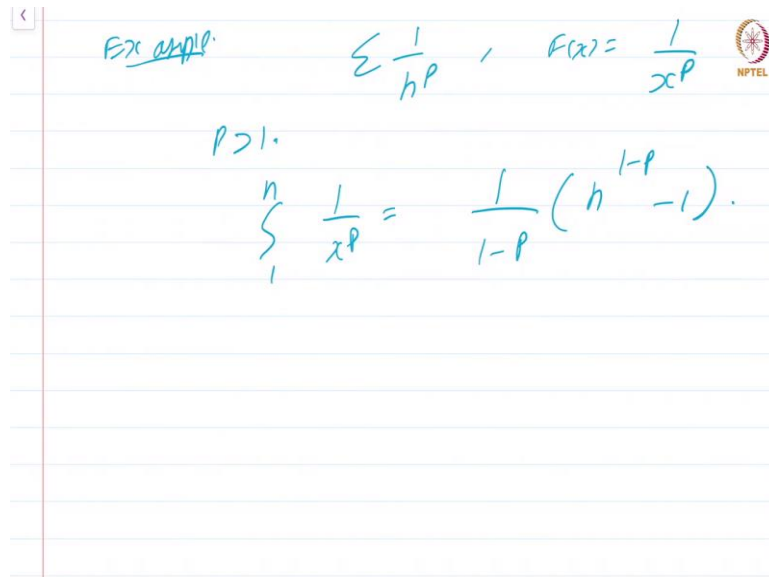 Example. Σ 1/n^p , F(x) = 1/x^p
NPTEL
p > 1.
∫_1^n 1/x^p = 1/(1-p) (n^(1-p) - 1).